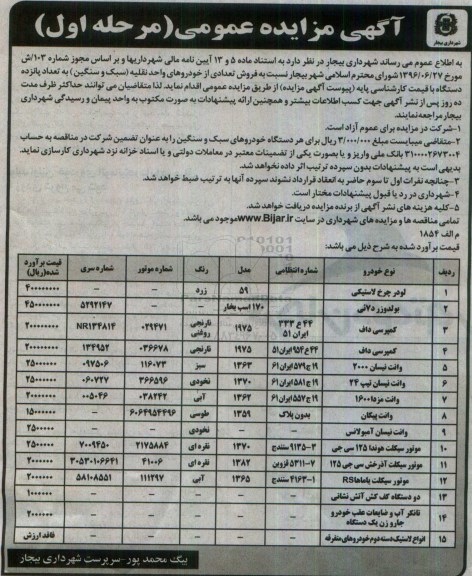 آگهی مزایده عمومی(مرحله اول)
شهرداری بیجار
به اطلاع عموم می رساند شهرداری بیجار در نظر دارد به استناد ماده ۵ و ۱۳ آیین نامه مالی شهرداریها و بر اساس مجوز شماره ۱۰۳/ش
مورخ ۱۳۹۶/۰۶/۲۷ شورای محترم اسلامی شهر بیجار نسبت به فروش تعدادی از خودروهای واحد نقلیه (سبک و سنگین) به تعداد پانزده
دستگاه با قیمت کارشناسی پایه (پیوست آگهی مزایده) از طریق مزایده عمومی اقدام نماید. لذا متقاضیان می توانند حداکثر ظرف مدت
ده روز پس از نشر آگهی جهت کسب اطلاعات بیشتر و همچنین ارائه پیشنهادات به صورت مکتوب به واحد پیمان و رسیدگی شهرداری
بیجار مراجعه نمایند.
۱-شرکت در مزایده برای عموم آزاد است.
۲-متقاضی میبایست مبلغ ۳/۰۰۰/۰۰۰ ریال برای هر دستگاه خودروهای سبک و سنگین را به عنوان تضمین شرکت در مناقصه به حساب
۳۱۰۰۰۰۲۶۷۳۰۰۴ بانک ملی واریز و یا بصورت یکی از تضمینات معتبر در معاملات دولتی و یا اسناد خزانه نزد شهرداری کارسازی نماید.
بدیهی است به پیشنهادات بدون سپرده ترتیب اثر داده نخواهد شد.
۳-چنانچه نفرات اول تا سوم حاضر به انعقاد قرارداد نشوند سپرده آنها به ترتیب ضبط خواهد شد.
۴-شهرداری در رد یا قبول پیشنهادات مختار است.
۵-کلیه هزینه های نشر آگهی از برنده مزایده دریافت خواهد شد.
تمامی مناقصه ها و مزایده های شهرداری در سایت www.Bijar.ir موجود می باشد.
م الف ۱۸۵۴
قیمت برآورد شده به شرح ذیل می باشد:
ردیف نوع خودرو شماره انتظامی مدل رنگ شماره موتور شماره سری قیمت برآورد شده(ریال)
۱ لودر چرخ لاستیکی – ۵۹ زرد – – ۴۰۰۰۰۰۰۰۰
۲ بولدوزر د۷تی – ۱۷۰ اسب بخار – – ۵۲۹۲۱۴۷ ۴۵۰۰۰۰۰۰۰
۳ کمپرسی داف ۴۴ع۳۳۳ ایران ۵۱ ۱۹۷۵ نارنجی روغنی ۰۲۹۴۷۱ NR۱۳۴۸۱۴ ۲۰۰۰۰۰۰۰۰
۴ کمپرسی داف ۴۴ع۹۵۴ایران۵۱ ۱۹۷۵ نارنجی ۰۳۶۶۷۸ ۱۳۴۹۵۲ ۲۰۰۰۰۰۰۰۰
۵ وانت نیسان ۲۰۰۰ ۱۹ج۵۷۹ایران۶۱ ۱۳۶۳ سبز ۱۱۶۰۷۳ ۰۹۷۵۰۶ ۲۵۰۰۰۰۰۰
۶ وانت نیسان تیپ ۲۴ ۱۹ج۵۸۱ایران۶۱ ۱۳۷۰ نخودی ۳۶۶۵۹۶ ۰۶۰۷۲۷ ۲۵۰۰۰۰۰۰
۷ وانت مزدا۱۶۰۰ ۱۹ج۵۵۷ایران۶۱ ۱۳۶۲ آبی ۰۳۸۲۴۲ ۰۰۵۰۴۶ ۲۰۰۰۰۰۰۰
۸ وانت پیکان بدون پلاک ۱۳۵۹ طوسی ۶۰۶۴۹۵۴۴۹۶ – ۱۵۰۰۰۰۰۰
۹ وانت نیسان آمبولانس – – نخودی – – ۲۵۰۰۰۰۰۰
۱۰ موتور سیکلت هوندا ۱۲۵ سی جی ۹۱۳۵-۳سنندج ۱۳۷۰ نقره ای ۲۱۷۵۸۸۴ ۷۰۰۹۴۵۰ ۲۵۰۰۰۰۰
۱۱ موتور سیکلت آذرخش سی جی ۱۲۵ ۵۳۱۱-۷قزوین ۱۳۸۲ نقره ای ۴۱۰۰۶ ۳۰۵۳۰۱۰۶۶۴۱ ۲۰۰۰۰۰۰
۱۲ موتور سیکلت یاماهاRS ۴۱۶۳-۱سنندج ۱۳۶۵ آبی ۱۱۱۲۹۷ ۵۸۱۰۸۵۵۱ ۲۰۰۰۰۰۰
۱۳ دو دستگاه کف کش آتش نشانی ۱۰۰۰۰۰۰
۱۴ تانکر آب و ضایعات عقب خودرو جارو زن یک دستگاه ۲۰۰۰۰۰۰
۱۵ انواع لاستیک دسته دوم خودروهای متفرقه فاقد ارزش
بیگ محمد پور-سرپرست شهرداری بیجار